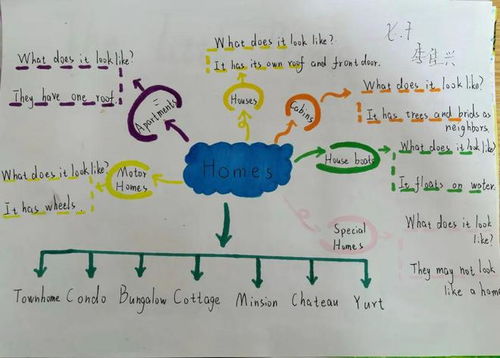 七.7
李自兴
What does it look like?
They have one roof.
Apartments
What does it look like?
It has its own roof and front door.
Houses
Cabins
What does it look like?
It has trees and brids as
neighbors.
Homes
House boats
What does it look like?
It floats on water.
What does it look like?
It has wheels.
Motor
Homes
Special
Homes
What does it look
like?
They may not look
like a home
Townhome Condo Bungalow Cottage Minsion Chateau Yurt